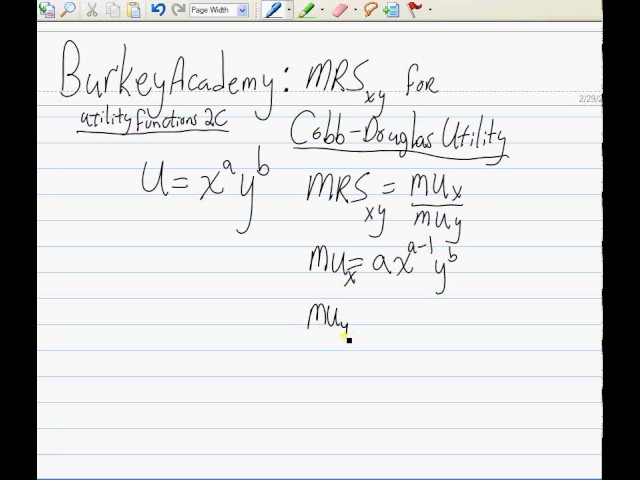 Page Width
BurkeyAcademy: MRS_xy for
utility functions 2C
Cobb-Douglas Utility
2/29/2
U = x^a y^b
MRS_xy = MU_x / MU_y
MU_x = a x^(a-1) y^b
MU_y